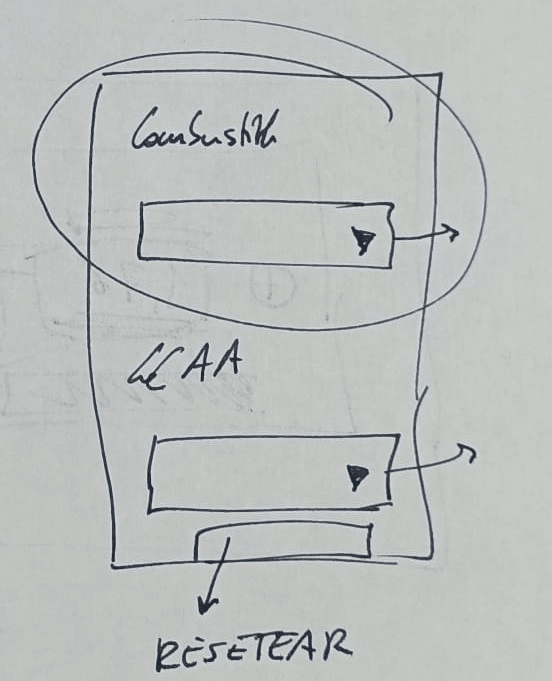 Combustible
CCAA
RESETEAR